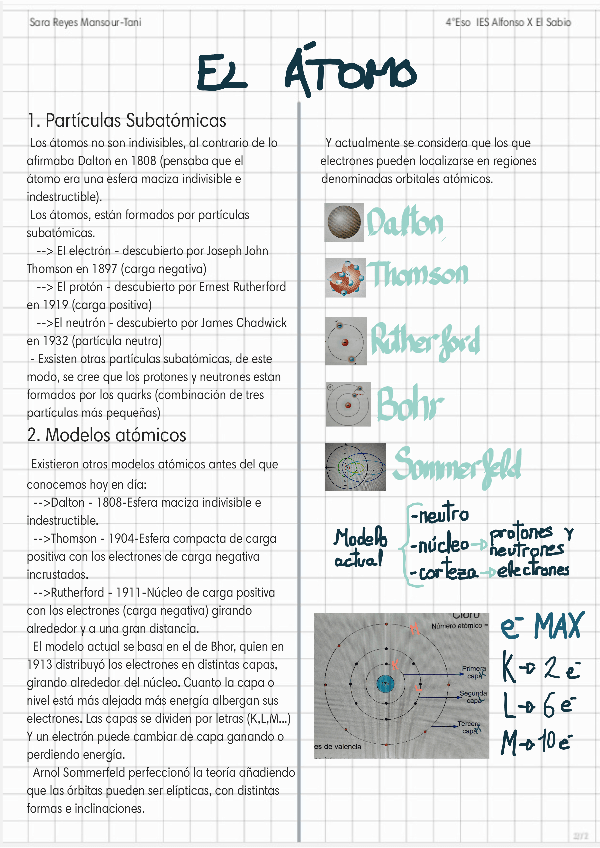 Sara Reyes Mansour-Tani
4ºEso IES Alfonso X El Sabio
EL ÁTOMO
1. Partículas Subatómicas
Los átomos no son indivisibles, al contrario de lo
afirmaba Dalton en 1808 (pensaba que el
átomo era una esfera maciza indivisible e
indestructible).
Los átomos, están formados por partículas
subatómicas.
--> El electrón - descubierto por Joseph John
Thomson en 1897 (carga negativa)
--> El protón - descubierto por Ernest Rutherford
en 1919 (carga positiva)
-->El neutrón - descubierto por James Chadwick
en 1932 (partícula neutra)
- Exsisten otras partículas subatómicas, de este
modo, se cree que los protones y neutrones estan
formados por los quarks (combinación de tres
partículas más pequeñas)
2. Modelos atómicos
Existieron otros modelos atómicos antes del que
conocemos hoy en día:
-->Dalton - 1808-Esfera maciza indivisible e
indestructible.
-->Thomson - 1904-Esfera compacta de carga
positiva con los electrones de carga negativa
incrustados.
-->Rutherford - 1911-Núcleo de carga positiva
con los electrones (carga negativa) girando
alrededor y a una gran distancia.
El modelo actual se basa en el de Bhor, quien en
1913 distribuyó los electrones en distintas capas,
girando alrededor del núcleo. Cuanto la capa o
nivel está más alejada más energía albergan sus
electrones. Las capas se dividen por letras (K,L,M...)
Y un electrón puede cambiar de capa ganando o
perdiendo energía.
Arnol Sommerfeld perfeccionó la teoría añadiendo
que las órbitas pueden ser elípticas, con distintas
formas e inclinaciones.
Y actualmente se considera que los que
electrones pueden localizarse en regiones
denominadas orbitales atómicos.
Dalton
Thomson
Rutherford
Bohr
Sommerfeld
Modelo
actual
-neutro
-núcleo → protones y
neutrones
-corteza → electrones
Cloro
Número atómico =
M
K
L
Primera
capa
Segunda
capa
Tercera
capa
es de valencia
e⁻ MAX
K→ 2 e⁻
L→ 6 e⁻
M→ 10 e⁻